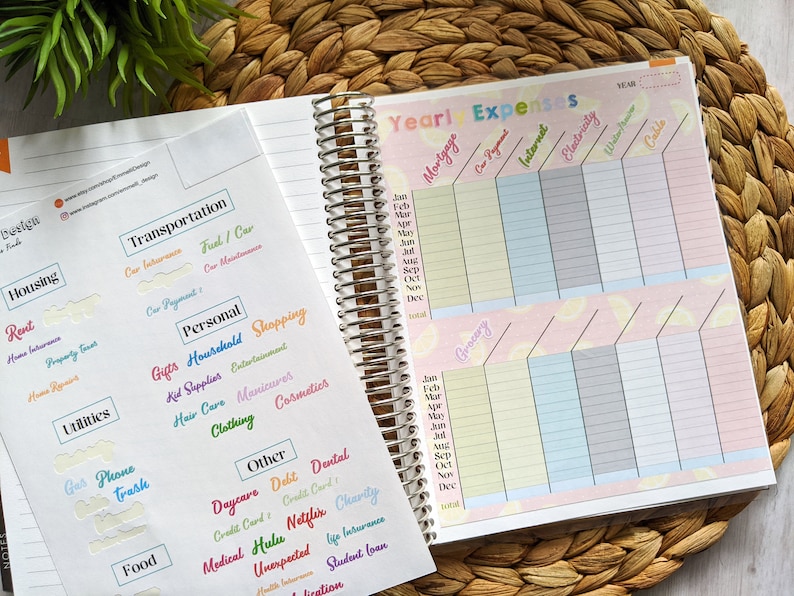 www.etsy.com/shop/EmmelliDesign
www.instagram.com/emmelli_design
Design
Finds
Housing
Rent
Home Insurance
Property Taxes
Home Repairs
Utilities
Gas
Phone
Trash
Food
Transportation
Car Insurance
Fuel / Car
Car Maintenance
Car Payment 2
Personal
Gifts
Household
Shopping
Kid Supplies
Entertainment
Hair Care
Manicures
Clothing
Cosmetics
Other
Daycare
Debt
Dental
Credit Card 2
Credit Card 1
Charity
Medical
Hulu
Netflix
Life Insurance
Unexpected
Student Loan
Health Insurance
NOTES
Yearly Expenses
YEAR
Mortgage
Car Payment
Internet
Electricity
Water/Sewer
Cable
Jan
Feb
Mar
Apr
May
Jun
Jul
Aug
Sep
Oct
Nov
Dec
total
Grocery
Jan
Feb
Mar
Apr
May
Jun
Jul
Aug
Sep
Oct
Nov
Dec
total